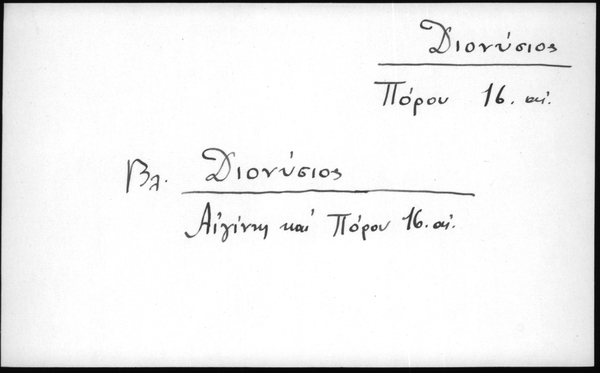 Διονύσιος
Πόρου 16. αἰ.
Βλ. Διονύσιος
Αἰγίνης καὶ Πόρου 16. αἰ.